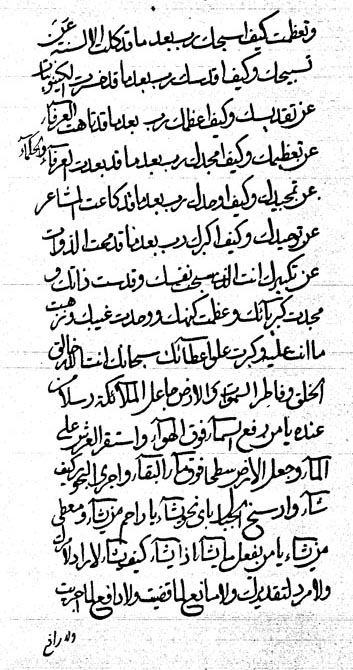 وتعظمت كيف اسبحك رب بعد ما قد كلت الالسن عن
تسبيحك وكيف اقدسك رب بعد ما قد قصرت الكينونيات
عن تقديسك وكيف اعظمك رب بعد ما قد تاهت العرفآء
عن تعظيمك وكيف امجدك رب بعد ما قد بعدت العرفآء والحكمآء
عن تمجيدك وكيف اوحدك رب بعد ما قد كاعت المشاعر
عن توحيدك وكيف اكبرك رب بعد ما قد محت الذوات
عن تكبيرك انت الذي سبحت نفسك وقدست ذاتك و
مجدت كبريائك وعظمت كهنك ووحدت غيبك ونزهت
ما انت عليه وكبرت علو اعطائك سبحانك انت الله خالق
الخلق وفاطر السموات والارض جاعل الملائكة رسلا من
عنده يا من رفع السمآء فوق الهوآء واستقر العرش على
المآء وجعل الارض سطحا فوق مآء البقآء واجرى البحر كيف
شآء وارسخ الجبال باي نحو يشآء يا راحم من يشآء ومعطي
من يشآء يا من يفعل ما يشآء اذا يشآء كيف يشآء لا راد لامرك
ولا مرد لتقديرك ولا مانع لما قضيت ولا دافع لما اجريت